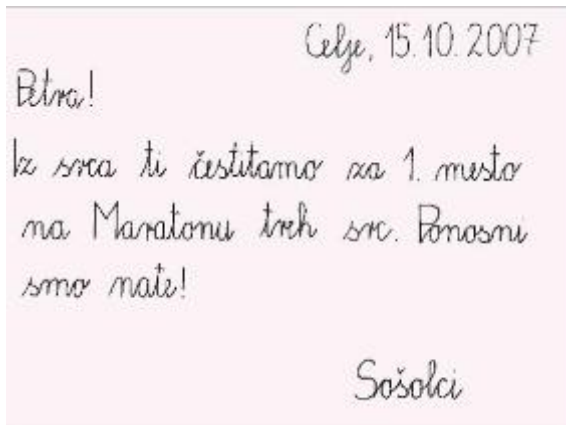 Celje, 15.10.2007
Petra!
Iz srca ti čestitamo za 1. mesto
na Maratonu treh src. Ponosni
smo nate!
Sošolci